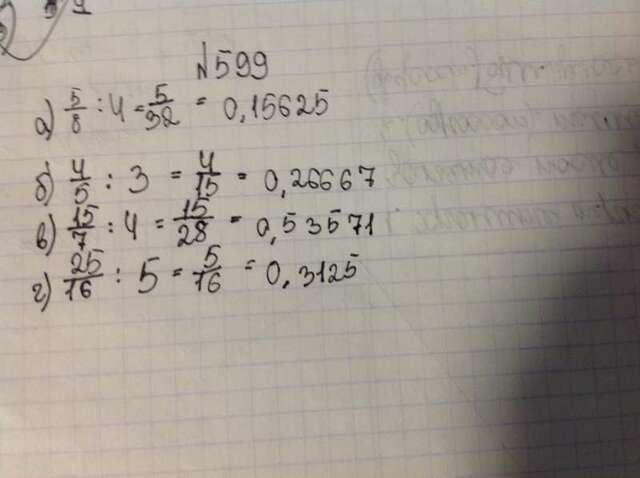 №599
а) 5/8 : 4 = 5/32 = 0,15625
б) 4/5 : 3 = 4/15 = 0,26667
в) 15/7 : 4 = 15/28 = 0,53571
г) 25/16 : 5 = 5/16 = 0,3125